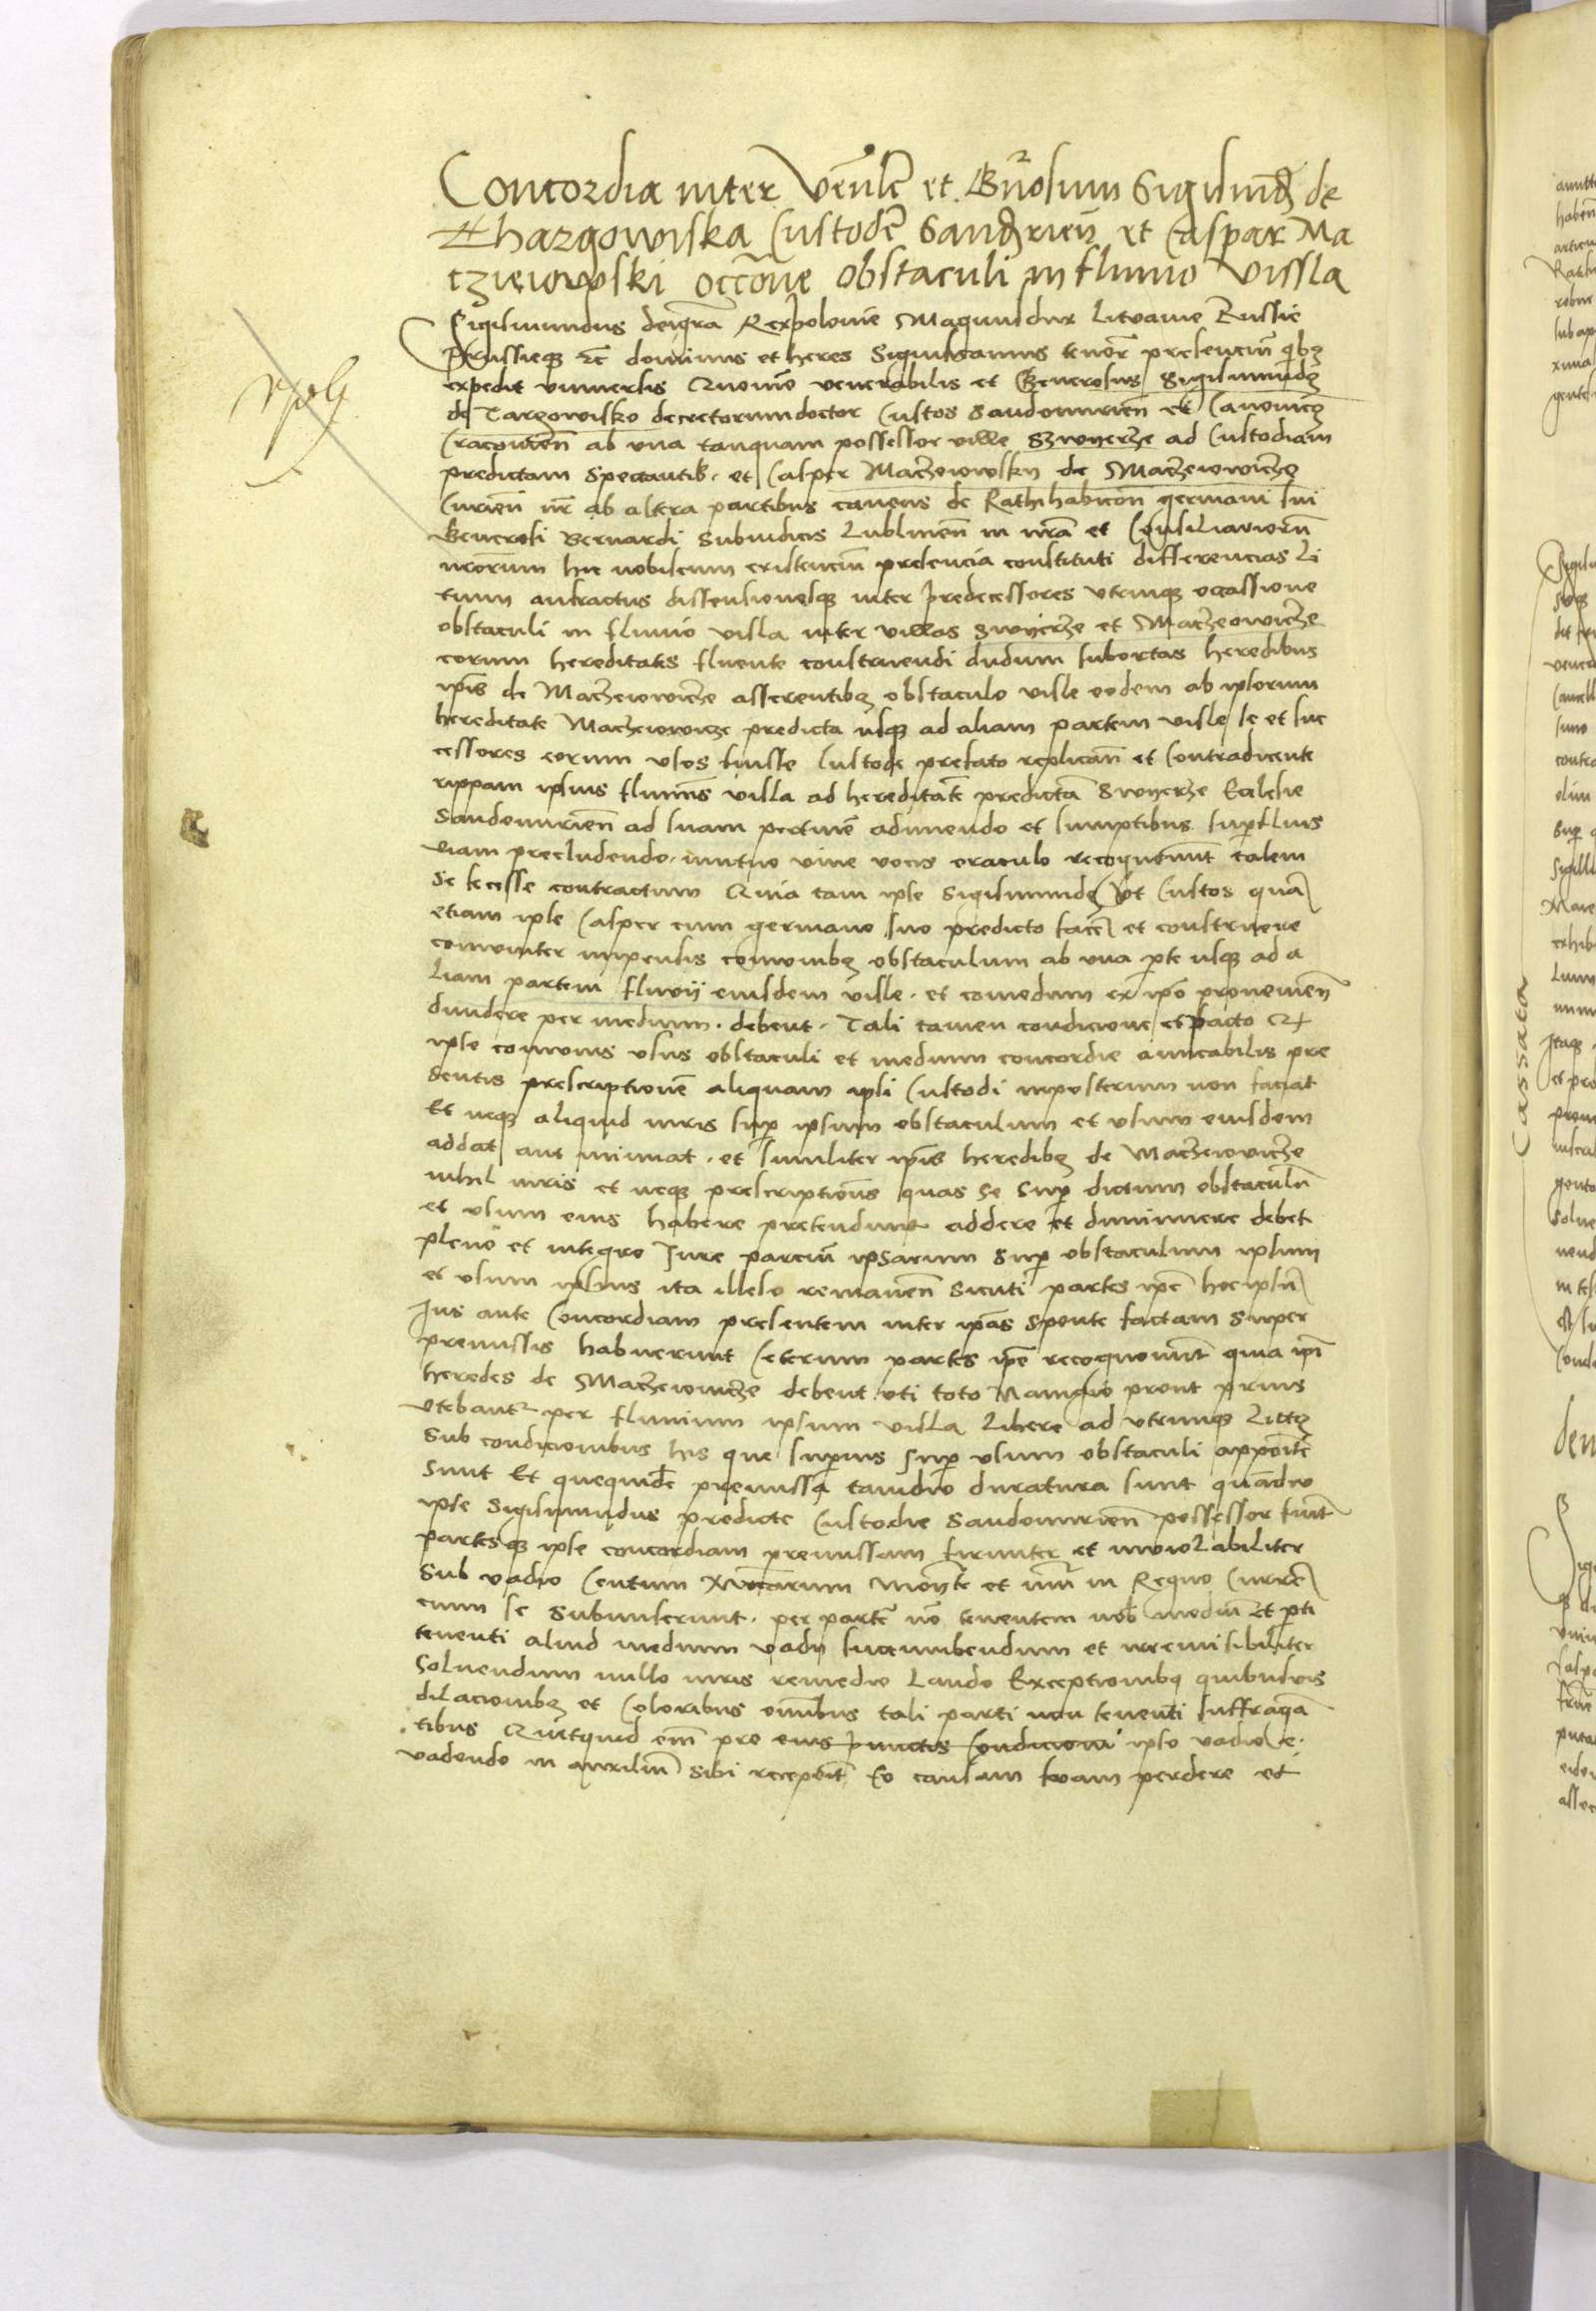 Concordia inter Venle et Gnosum Sigismd de
Thargowiska Custode Sandrien et Caspar Ma
czieiowski occone obstaculi in fluvio Vissla
Sigismundus dei gra Rex polonie Magnus dux Lituanie Russie
Prussieq etc dominus et heres Significamus tenore presencium qbz
expedit universis Quomo venerabilis et Generosus Sigismundz
de Targowisko decretorum doctor Custos Sandomirien et Canonicz
Cracovien ab una tanquam possessor ville Szwyerze ad Custodiam
predictam spectantis et Casper Maczieiowsky de Maczeiowicze
Curien nr ab altera partibus cavens de Rathihabicon germani sui
Generosi Bernardi Subiudicis Lublinen in nra et Consiliariorum
nrorum hic nobiscum existencium presencia constituti differencias li
tium anfractus dissensionesq inter predecessores utrinq occassione
obstaculi in fluvio visla inter villas Swyerze et Maczeiowicze
eorum hereditates fluente construendi dudum subortas heredibus
ipis de Maczeiowicze asserentibz obstaculo visle eodem ab ipsorum
hereditate Maczeiowicze predicta usq ad aliam partem visle se et suc
cessores eorum usos fuisse Custode prefato replican et Contradicente
rippam ipsius fluminis visla ad hereditate predicta Swyerze Ecclesie
Sandomirien ad suam pertinen adimendo et sumptibus superfluis
viam precludendo mutuo vive vocis oraculo recognoverunt talem
se fecisse contractum Quia tam ipse Sigismundz ut Custos qua
etiam ipse Casper cum germano suo predicto facere et construere
comuniter impensis comunibz obstaculum ab una pte usq ad a
liam partem fluvii eiusdem visle et comodum ex ipo provenien
dividere per medium debent Tali tamen condicione et pacto Q
ipse comunis usus obstaculi et medium concordie amicabilis pre
sentis prescriptione aliquam ipsi Custodi inposterum non faciat
Et neq aliquid iuris sup ipsum obstaculum et usum eiusdem
addat aut minuat et similiter ipis heredibz de Maczeiowicze
nihil iuris et neq prescriptionis quas se sup dictum obstaculu
et usum eius habere pretendunt addere et diminuere debet
pleno et integro Iure parcium ipsarum sup obstaculum ipsum
et usum ipsius ita illeso remanen sicuti partes ipe hoc ipsu
Ius ante Concordiam presentem inter ipas sponte factam super
premissis habuerunt Ceterum partes ipe recognoverunt quia ipi
heredes de Maczeiowicze debent uti toto Navigio prout prius
utebantur per fluvium ipsum visla libere ad utrumq littz
sub condicionibus his que superius sup usum obstaculi apposite
sunt Et quequide premissa tamdiu duratura sunt quamdiu
ipse Sigismundus predicte Custodie Sandomirien possessor fuerit
partesq ipse concordiam premissam firmiter et inviolabiliter
sub vadio Centum Mcarum Monete et nui in Regno Curre
cium se subiuserunt per parte no tenentem nob medium et pti
tenenti aliud medium vadii succumbendum et irremisibiliter
solvendum nullo iuris remedio Laudo Exceptionibq quibusvis
dilacionibz et Coloribus omibus tali parti non tenenti suffraga
tibus Quitquid em pro eius punctis Condicioni ipso vadio e
vadendo in auxilium sibi receperit Eo causam suam perdere et
Cassata